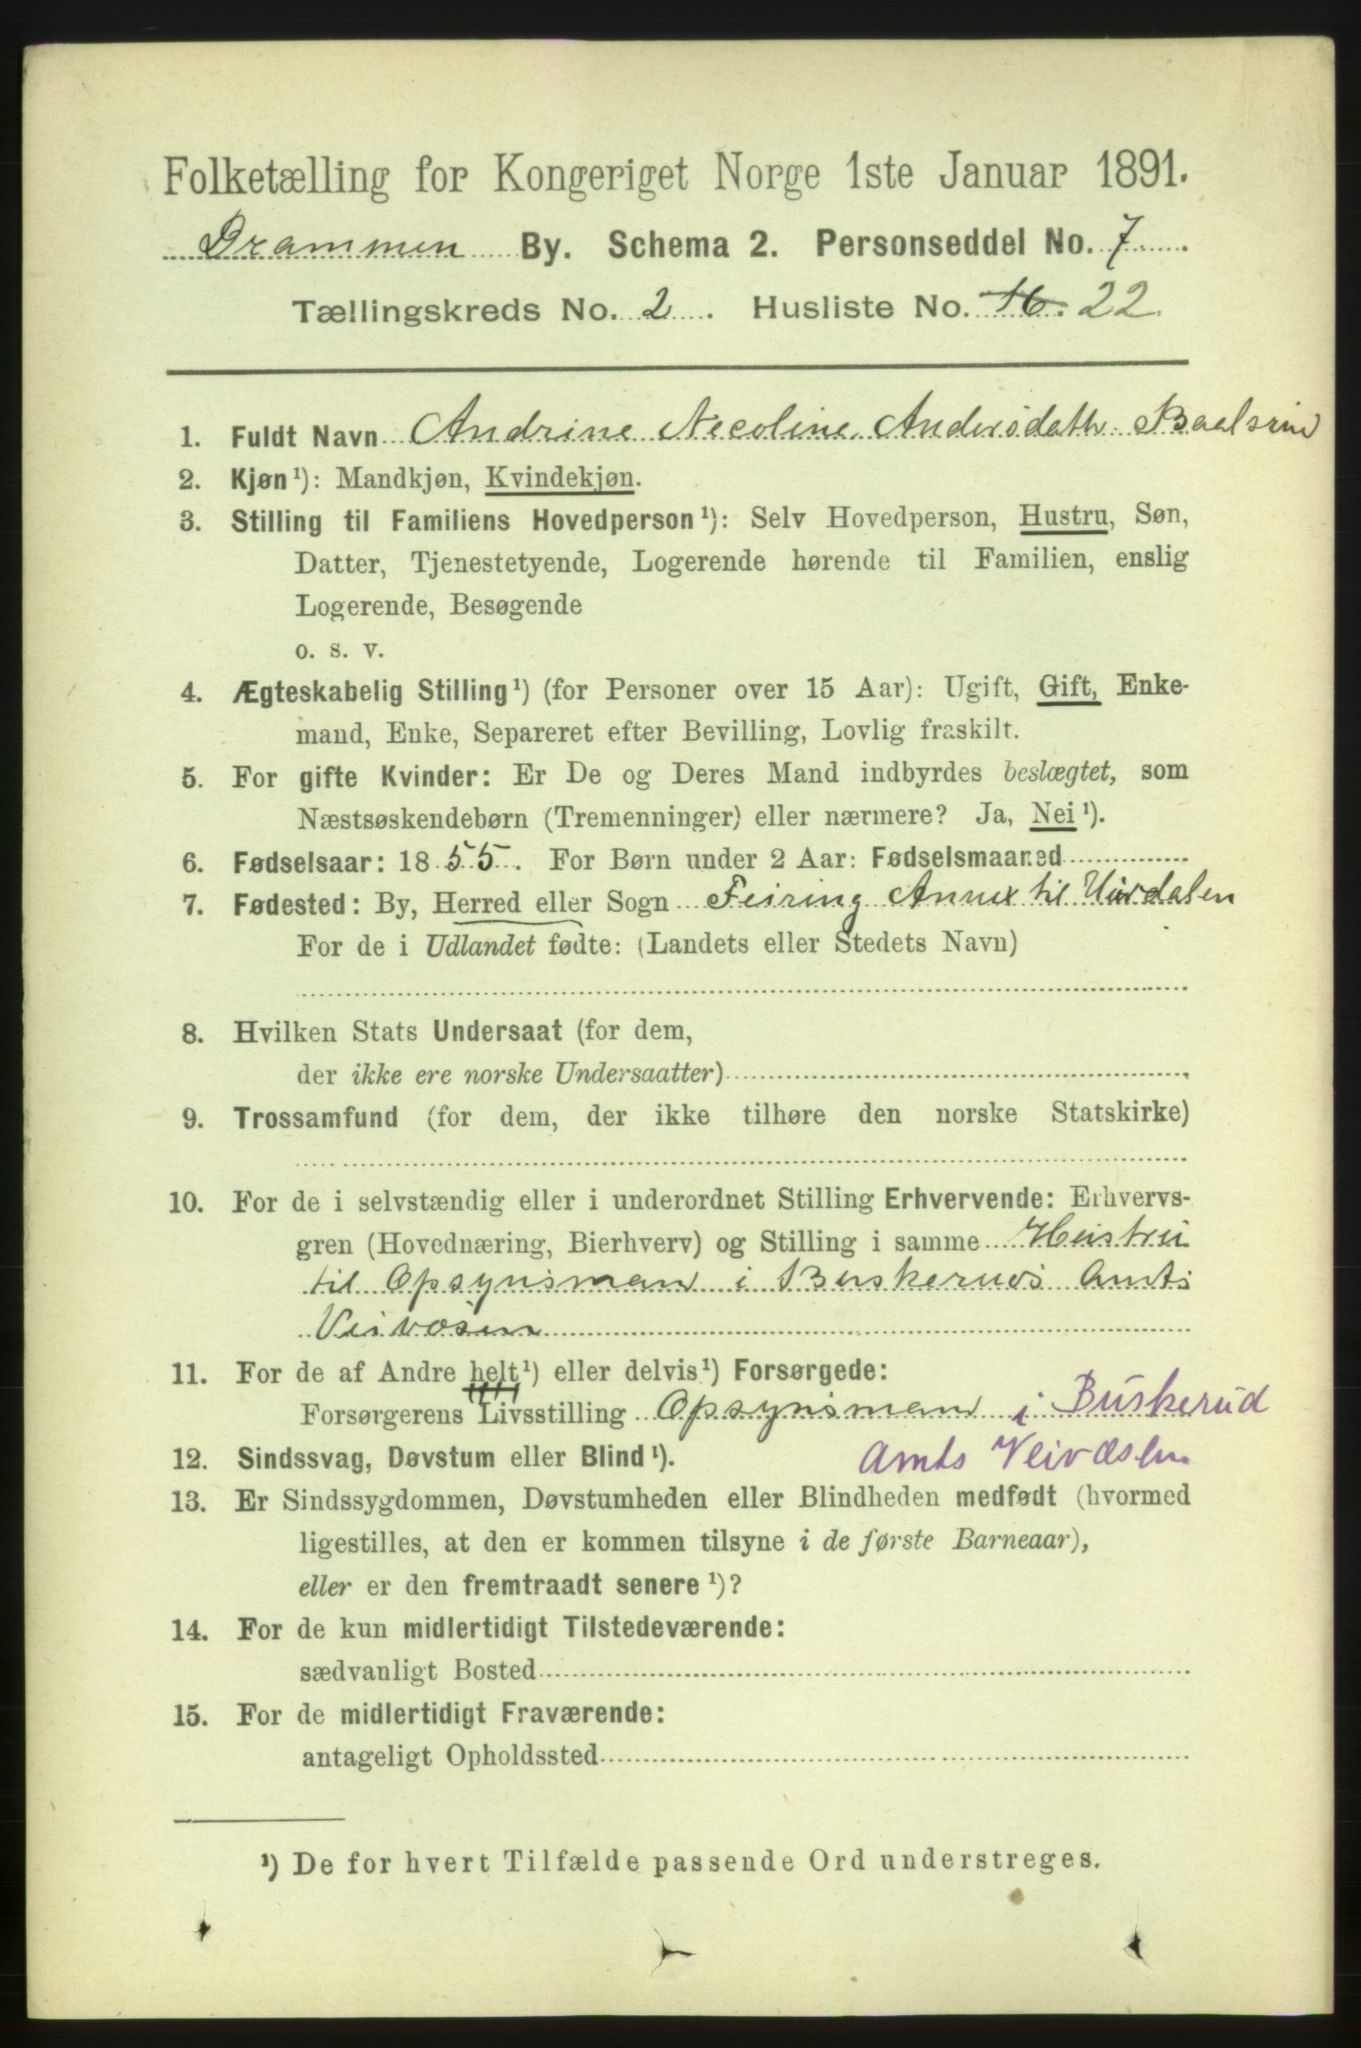 Folketælling for Kongeriget Norge 1ste Januar 1891.
Drammen By. Schema 2. Personseddel No. 7
Tællingskreds No. 2. Husliste No. 16. 22
1. Fuldt Navn Andrine Necoline Andersdath Baalsrud
2. Kjøn¹): Mandkjøn, Kvindekjøn.
3. Stilling til Familiens Hovedperson¹): Selv Hovedperson, Hustru, Søn,
Datter, Tjenestetyende, Logerende hørende til Familien, enslig
Logerende, Besøgende
o. s. v.
4. Ægteskabelig Stilling¹) (for Personer over 15 Aar): Ugift, Gift, Enke-
mand, Enke, Separeret efter Bevilling, Lovlig fraskilt.
5. For gifte Kvinder: Er De og Deres Mand indbyrdes beslægtet, som
Næstsøskendebørn (Tremenninger) eller nærmere? Ja, Nei¹).
6. Fødselsaar: 1855. For Børn under 2 Aar: Fødselsmaaned
7. Fødested: By, Herred eller Sogn Feiring Annex til Hurdalen
For de i Udlandet fødte: (Landets eller Stedets Navn)
8. Hvilken Stats Undersaat (for dem,
der ikke ere norske Undersaatter)
9. Trossamfund (for dem, der ikke tilhøre den norske Statskirke)
10. For de i selvstændig eller i underordnet Stilling Erhvervende: Erhvervs-
gren (Hovednæring, Bierhverv) og Stilling i samme Hustru
til Opsynsman i Buskeruds Amts
Veivæsen
11. For de af Andre helt¹) eller delvis¹) Forsørgede:
Forsørgerens Livsstilling Opsynsman i Buskerud
Amts Veivæsen
12. Sindssvag, Døvstum eller Blind¹).
13. Er Sindssygdommen, Døvstumheden eller Blindheden medfødt (hvormed
ligestilles, at den er kommen tilsyne i de første Barneaar),
eller er den fremtraadt senere¹)?
14. For de kun midlertidigt Tilstedeværende:
sædvanligt Bosted
15. For de midlertidigt Fraværende:
antageligt Opholdssted
¹) De for hvert Tilfælde passende Ord understreges.